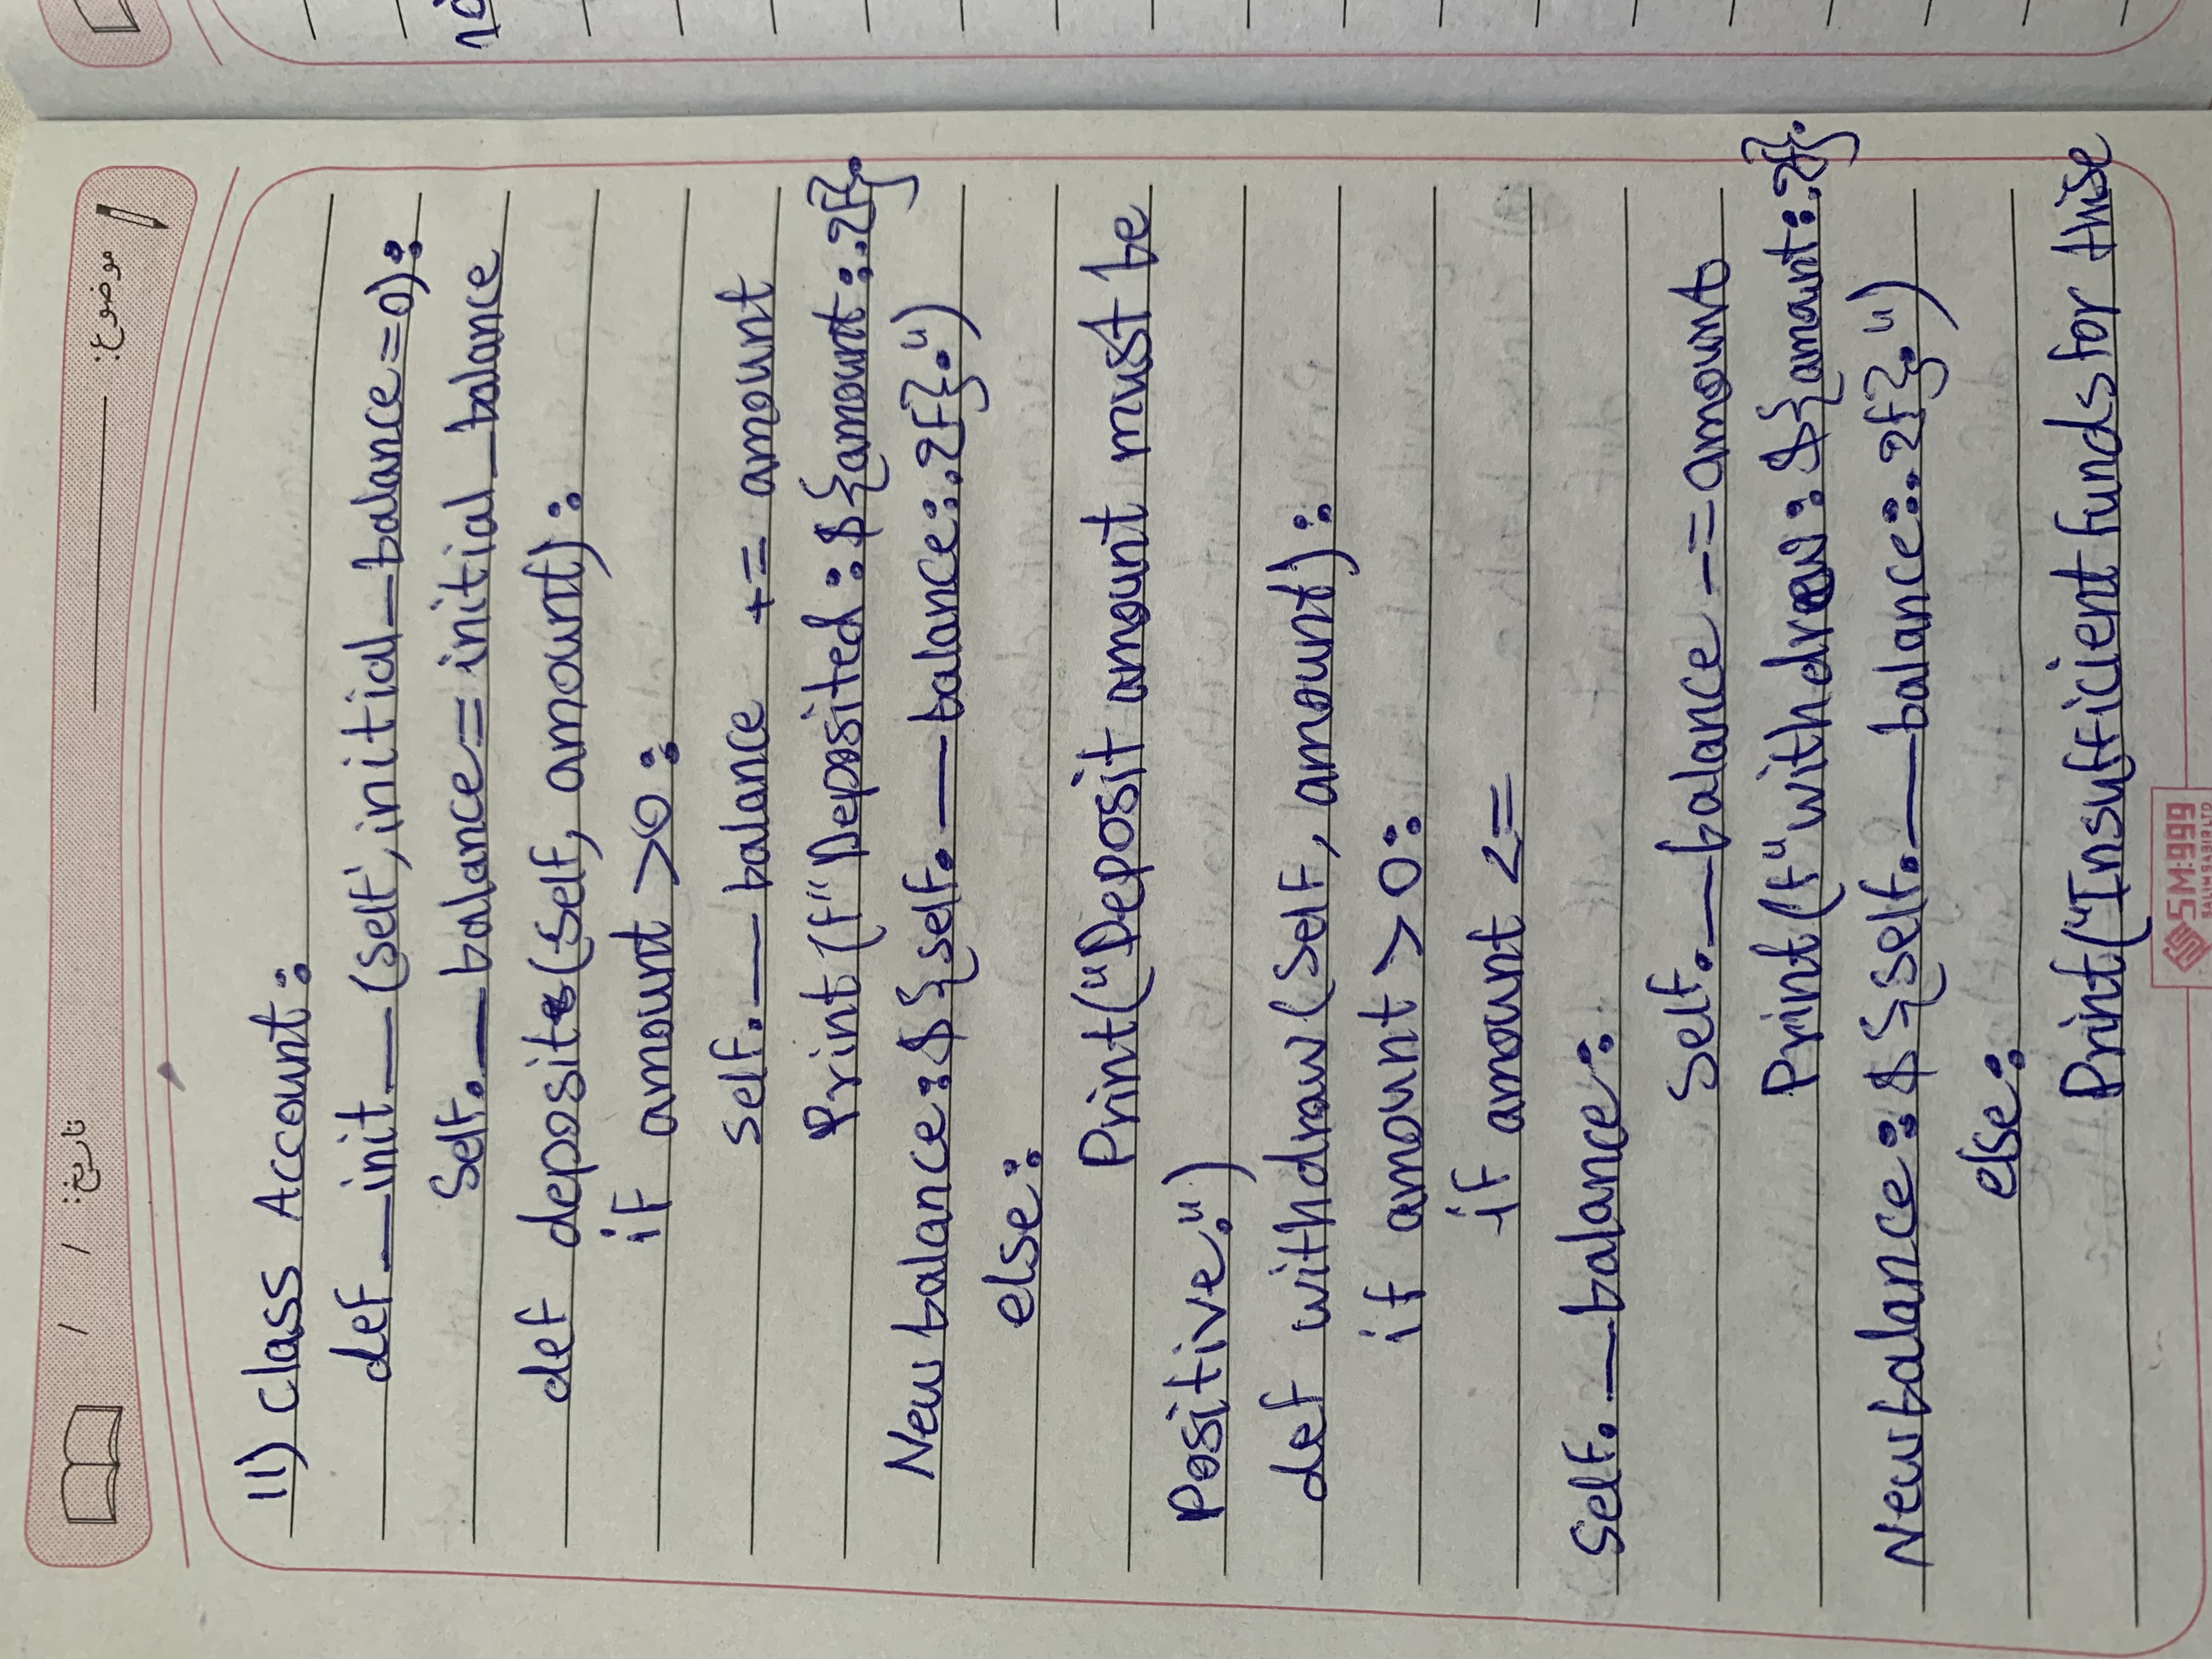 موضوع: تاریخ: / /
11) class Account:
def __init__(self, initial_balance=0):
Self.__balance = initial_balance
def deposit(self, amount):
if amount >0:
self.__balance += amount
Print(f"Deposited:${amount:.2f}.
New balance:${self.__balance:.2f}.")
else:
Print("Deposit amount must be
Positive.")
def withdraw(Self, amount):
if amount > 0:
if amount <=
Self.__balance:
Self.__balance -= amount
Print(f"withdrew: ${amount:.2f}.
New balance:${self.__balance:.2f}.")
else:
Print("Insufficient funds for thise
SM:999
SALIM SABIR LTD
10